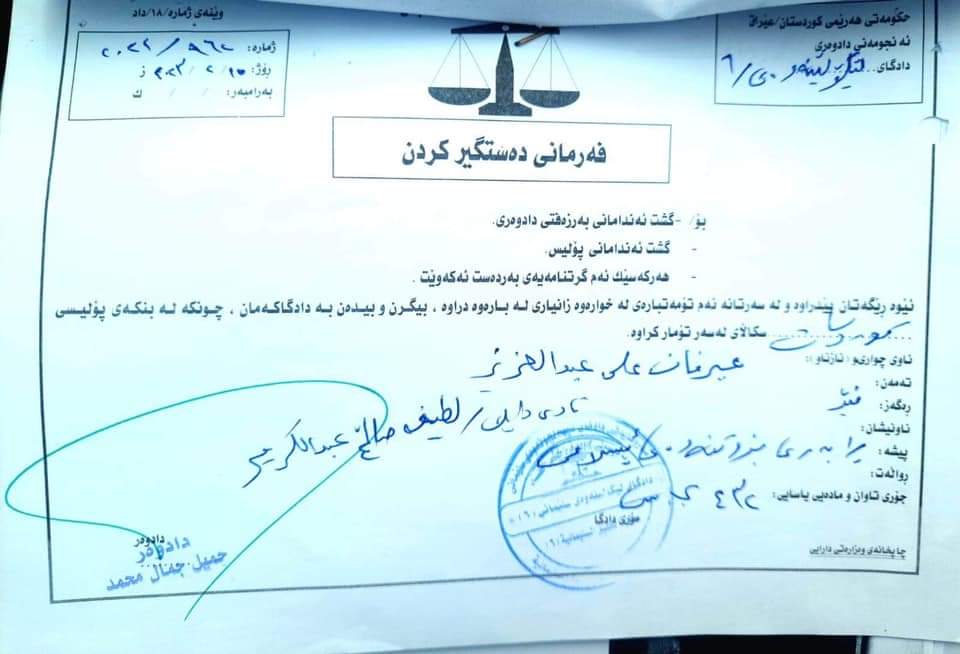 وێنەی ژمارە/١٨/داد
حکومەتی هەرێمی کوردستان/عێراق
ئه نجومەنی دادوەری
دادگای..لێکۆڵینەوەی/٦
ژمارە: ٩٦٢/٢٠٢٢
ڕۆژ: ١٥/٢/٢٠٢٣ ز
بەرامبەر: / / ك
فەرمانی دەستگیر کردن
بۆ/ -گشت ئەندامانی بەرزەفتی دادوەری.
- گشت ئەندامانی پۆلیس.
- هەرکەسێك ئەم گرتنامەیەی بەردەست ئەکەوێت .
ئێوە ڕێگەتان پێدراوە و لە سەرتانە ئەم تۆمەتبارەی لە خوارەوە زانیاری لە بارەوە دراوە ، بیگرن و بیدەن بە دادگاکەمان ، چونکە لە بنکەی پۆلیسی
سکاڵای لەسەر تۆمار کراوە.
ناوی چواری و( نازناو ): عیرفان علی عبدالعزیز
تەمەن:
ڕەگەز: نێر
ناوی دایك/ لطیف صالح عبدالکریم
ناونیشان:
پیشە: ڕابەری بزوتنەوەی ئیسلامی
ڕواڵەت:
جۆری تاوان و مادەیی یاسایی: ٤٣٢
مۆری دادگا
دادوەر
دادوەر
جمیل جمال محمد
چاپخانەی وەزارەتی دارایی